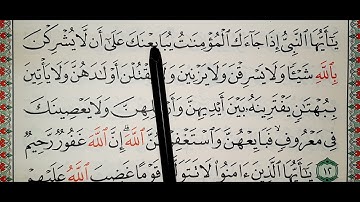 يَٰٓأَيُّهَا ٱلنَّبِىُّ إِذَا جَآءَكَ ٱلْمُؤْمِنَٰتُ يُبَايِعْنَكَ عَلَىٰٓ أَن لَّا يُشْرِكْنَ
بِٱللَّهِ شَيْـًٔا وَلَا يَسْرِقْنَ وَلَا يَزْنِينَ وَلَا يَقْتُلْنَ أَوْلَٰدَهُنَّ وَلَا يَأْتِينَ
بِبُهْتَٰنٍ يَفْتَرِينَهُۥ بَيْنَ أَيْدِيهِنَّ وَأَرْجُلِهِنَّ وَلَا يَعْصِينَكَ
فِى مَعْرُوفٍ فَبَايِعْهُنَّ وَٱسْتَغْفِرْ لَهُنَّ ٱللَّهَ إِنَّ ٱللَّهَ غَفُورٌ رَّحِيمٌ
١٢ يَٰٓأَيُّهَا ٱلَّذِينَ ءَامَنُوا۟ لَا تَتَوَلَّوْا۟ قَوْمًا غَضِبَ ٱللَّهُ عَلَيْهِمْ